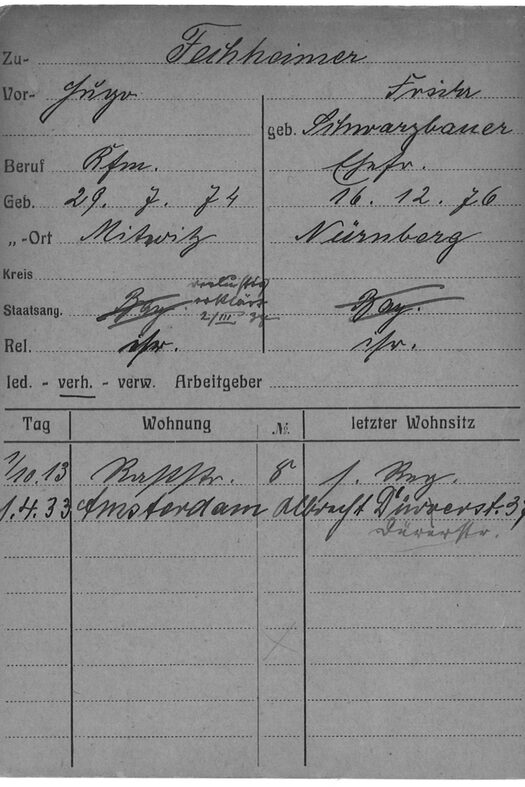 Zu- Fechheimer
Vor- Hugo Frieda
geb. Schwarzbauer
Beruf Kfm. Ehefr.
Geb. 29. 7. 74 16. 12. 76
„-Ort Mitwitz Nürnberg
Kreis
verlustig
Staatsang. Bay. erklärt Bay.
2/III 37
Rel. isr. isr.
led. - verh. - verw. Arbeitgeber
Tag Wohnung № letzter Wohnsitz
1/10.13 Rassstr. 8 s. Reg.
1.4.33 Amsterdam Albrecht Dürrerst. 37
Dürerstr.